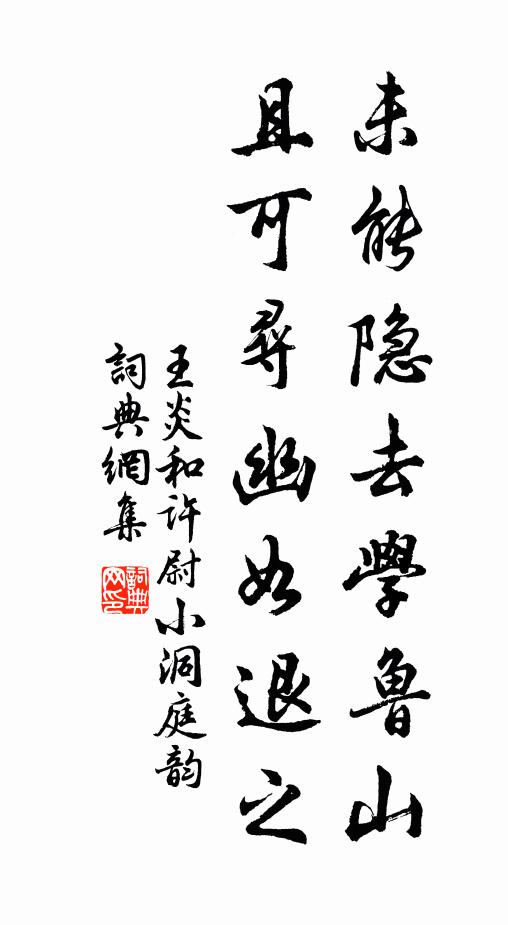 未能隐去學魯山
且可尋幽如退之
王炎和許尉小洞庭韵
詞典網集
詞典
网印